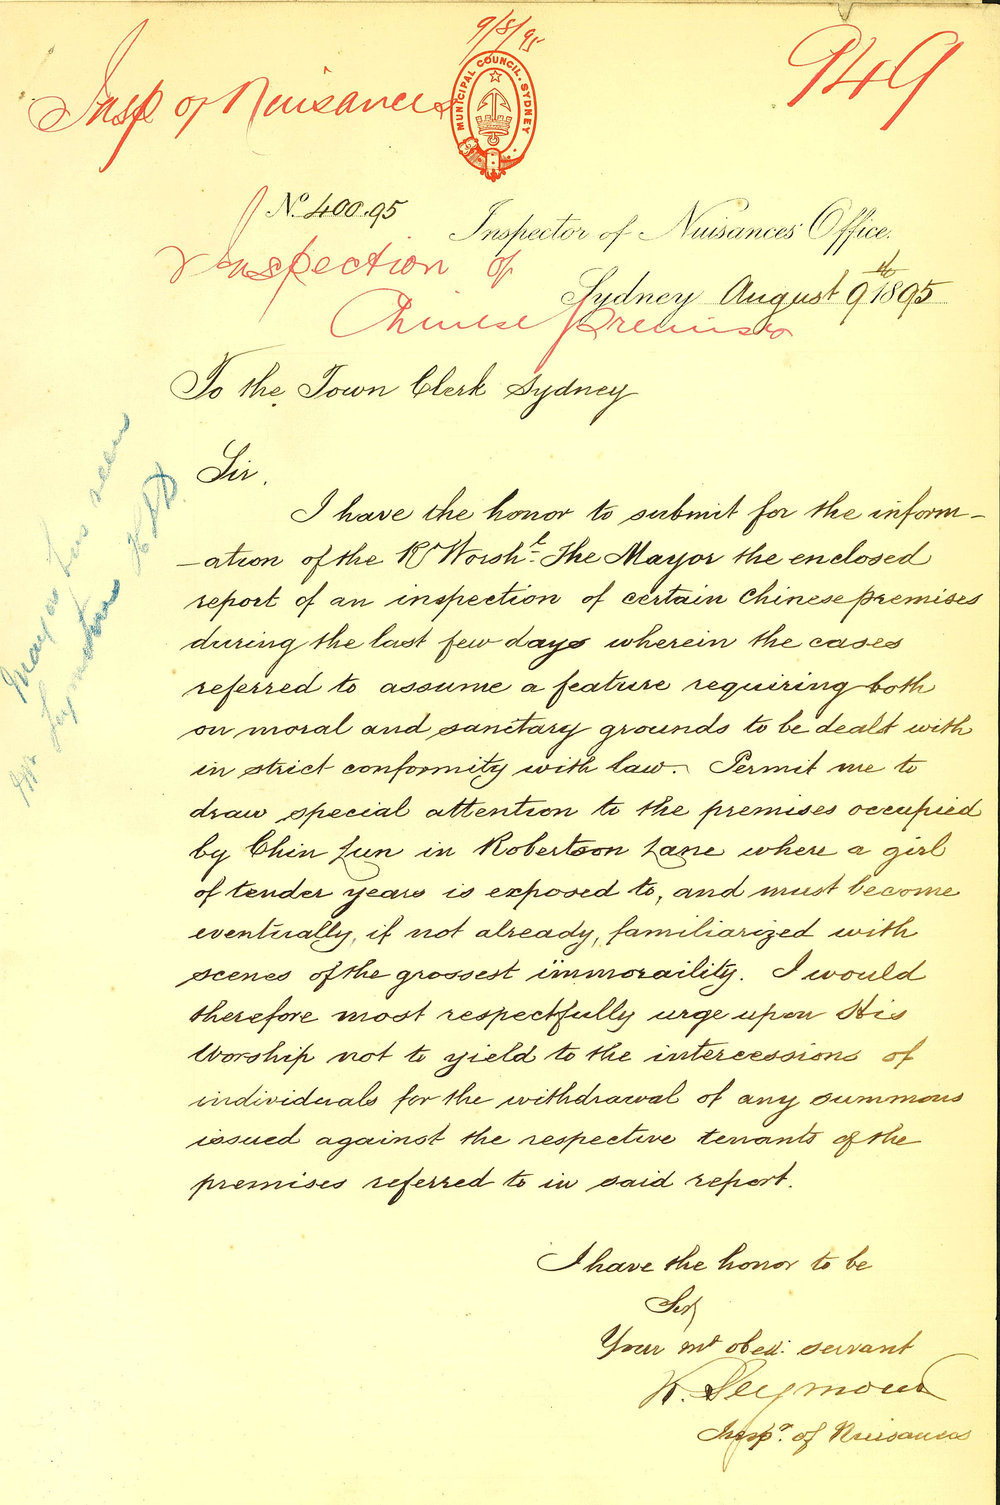 9/8/95
949
Insp of Nuisances
MUNICIPAL COUNCIL. SYDNEY
No. 400.95
Inspector of Nuisances' Office.
Inspection of
Sydney August 9th 1895
Chinese premises
To the Town Clerk Sydney
Sir,
I have the honor to submit for the inform-
-ation of the Rt Worshl. The Mayor the enclosed
report of an inspection of certain Chinese premises
during the last few days wherein the cases
referred to assume a feature requiring both
on moral and sanitary grounds to be dealt with
in strict conformity with law. Permit me to
draw special attention to the premises occupied
by Chin Lun in Robertson Lane where a girl
of tender years is exposed to, and must become
eventually, if not already, familiarized with
scenes of the grossest immoraility. I would
therefore most respectfully urge upon His
Worship not to yield to the intercessions of
individuals for the withdrawal of any summons
issued against the respective tenants of the
premises referred to in said report.
I have the honor to be
Sir
Your mt obedt. servant
R. Seymour
Inspr. of Nuisances
Mayor has seen
Mr Seymour